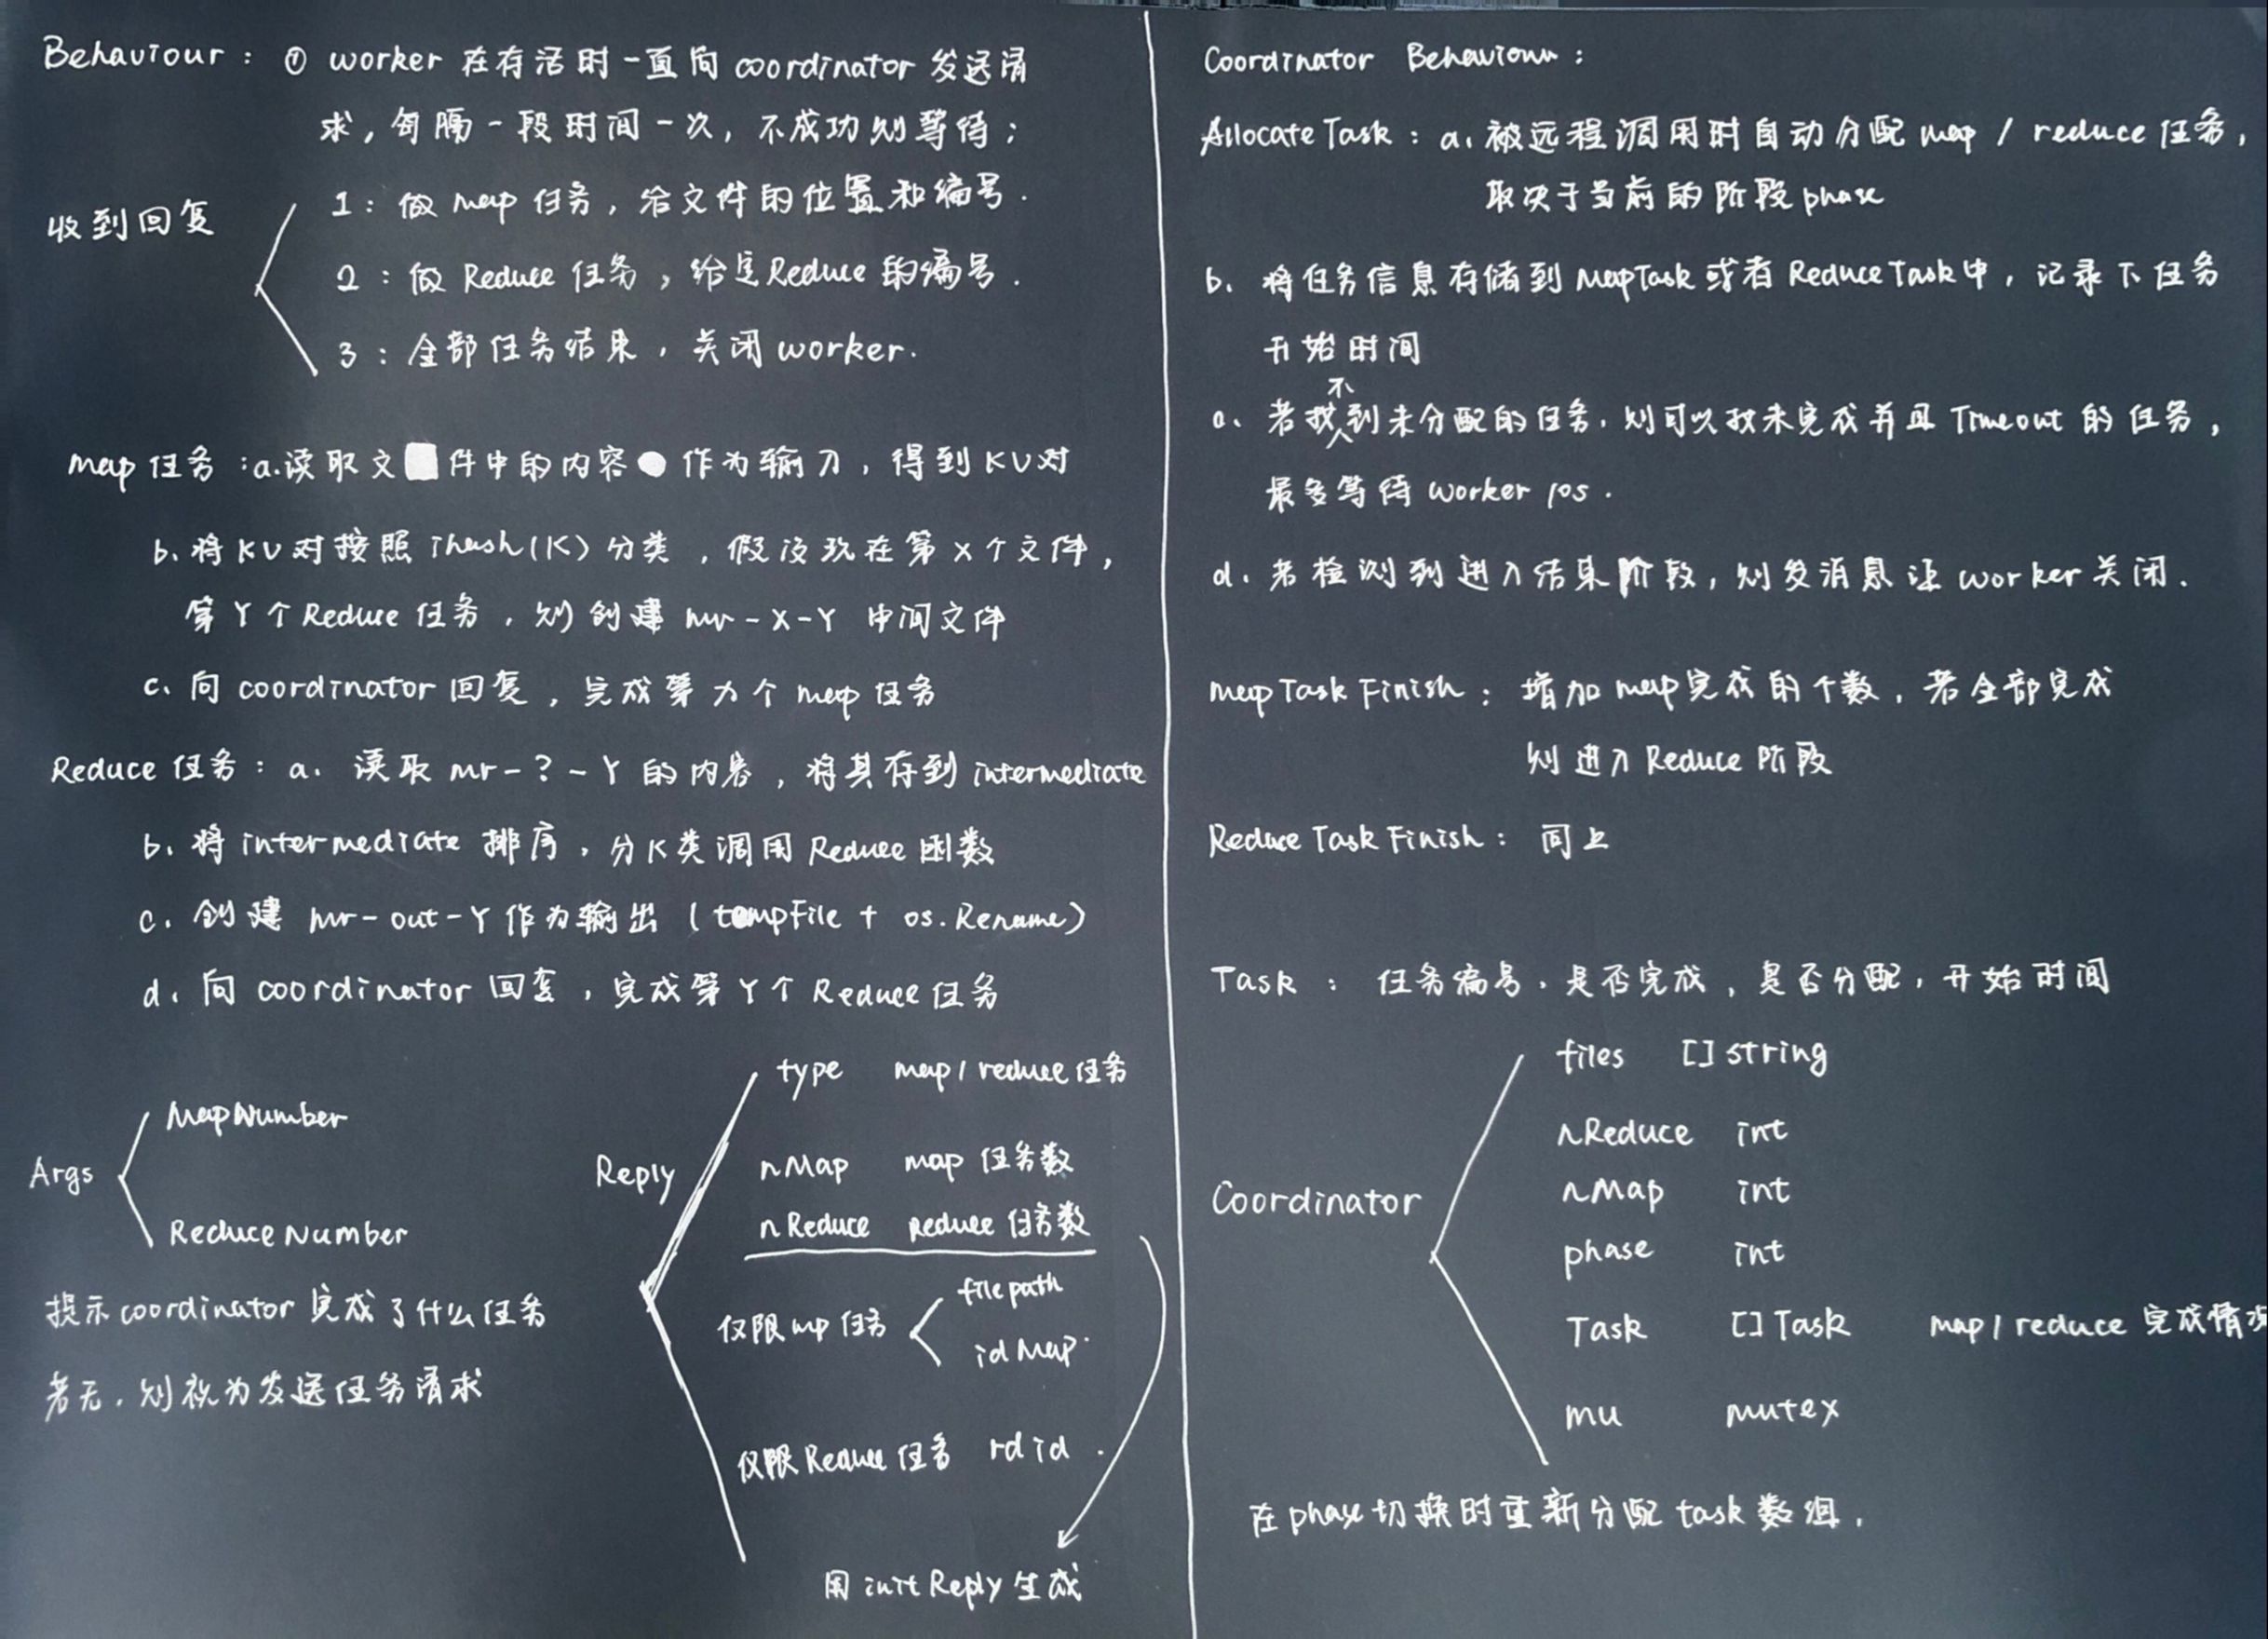 Behaviour : ① worker 在存活时一直向 coordinator 发送请
求, 每隔一段时间一次, 不成功则等待;
收到回复
1: 做 map 任务, 给文件的位置和编号.
2: 做 Reduce 任务, 给定Reduce 的编号.
3: 全部任务结束, 关闭 worker.
map 任务 :a.读取文件中的内容 作为输入, 得到KV对
b. 将KV对按照 ihash(K) 分类, 假设现在第 X 个文件,
第 Y 个 Reduce 任务, 则创建 mr-X-Y 中间文件
c. 向 coordinator 回复, 完成第 个 map 任务
Reduce 任务: a. 读取 mr-?-Y 的内容, 将其存到 intermediate
b. 将 intermediate 排序, 分K类调用 Reduce 函数
c. 创建 mr-out-Y 作为输出 (tempFile + os.Rename)
d. 向 coordinator 回复, 完成第 Y 个 Reduce 任务
Args
MapNumber
ReduceNumber
提示coordinator 完成了什么任务
若无, 则视为发送任务请求
Reply
type map/reduce任务
nMap map 任务数
nReduce Reduce 任务数
仅限mp 任务
filepath
idMap
仅限Reduce 任务 rdid
用initReply生成
Coordinator Behaviour :
Allocate Task : a. 被远程调用时自动分配 map / reduce 任务,
取决于当前的阶段phase
b. 将任务信息存储到 MapTask 或者 ReduceTask中, 记录下任务
开始时间
c. 若找不到未分配的任务, 则可以找未完成并且 Timeout 的任务,
最多等待 worker 10s.
d. 若检测到进入结束阶段, 则发消息让 worker 关闭.
map Task Finish : 增加map完成的个数, 若全部完成
则进入Reduce 阶段
Reduce Task Finish : 同上
Task : 任务编号, 是否完成, 是否分配, 开始时间
Coordinator
files []string
nReduce int
nMap int
phase int
Task []Task map/reduce 完成情况
mu mutex
在phase切换时重新分配 task 数组.